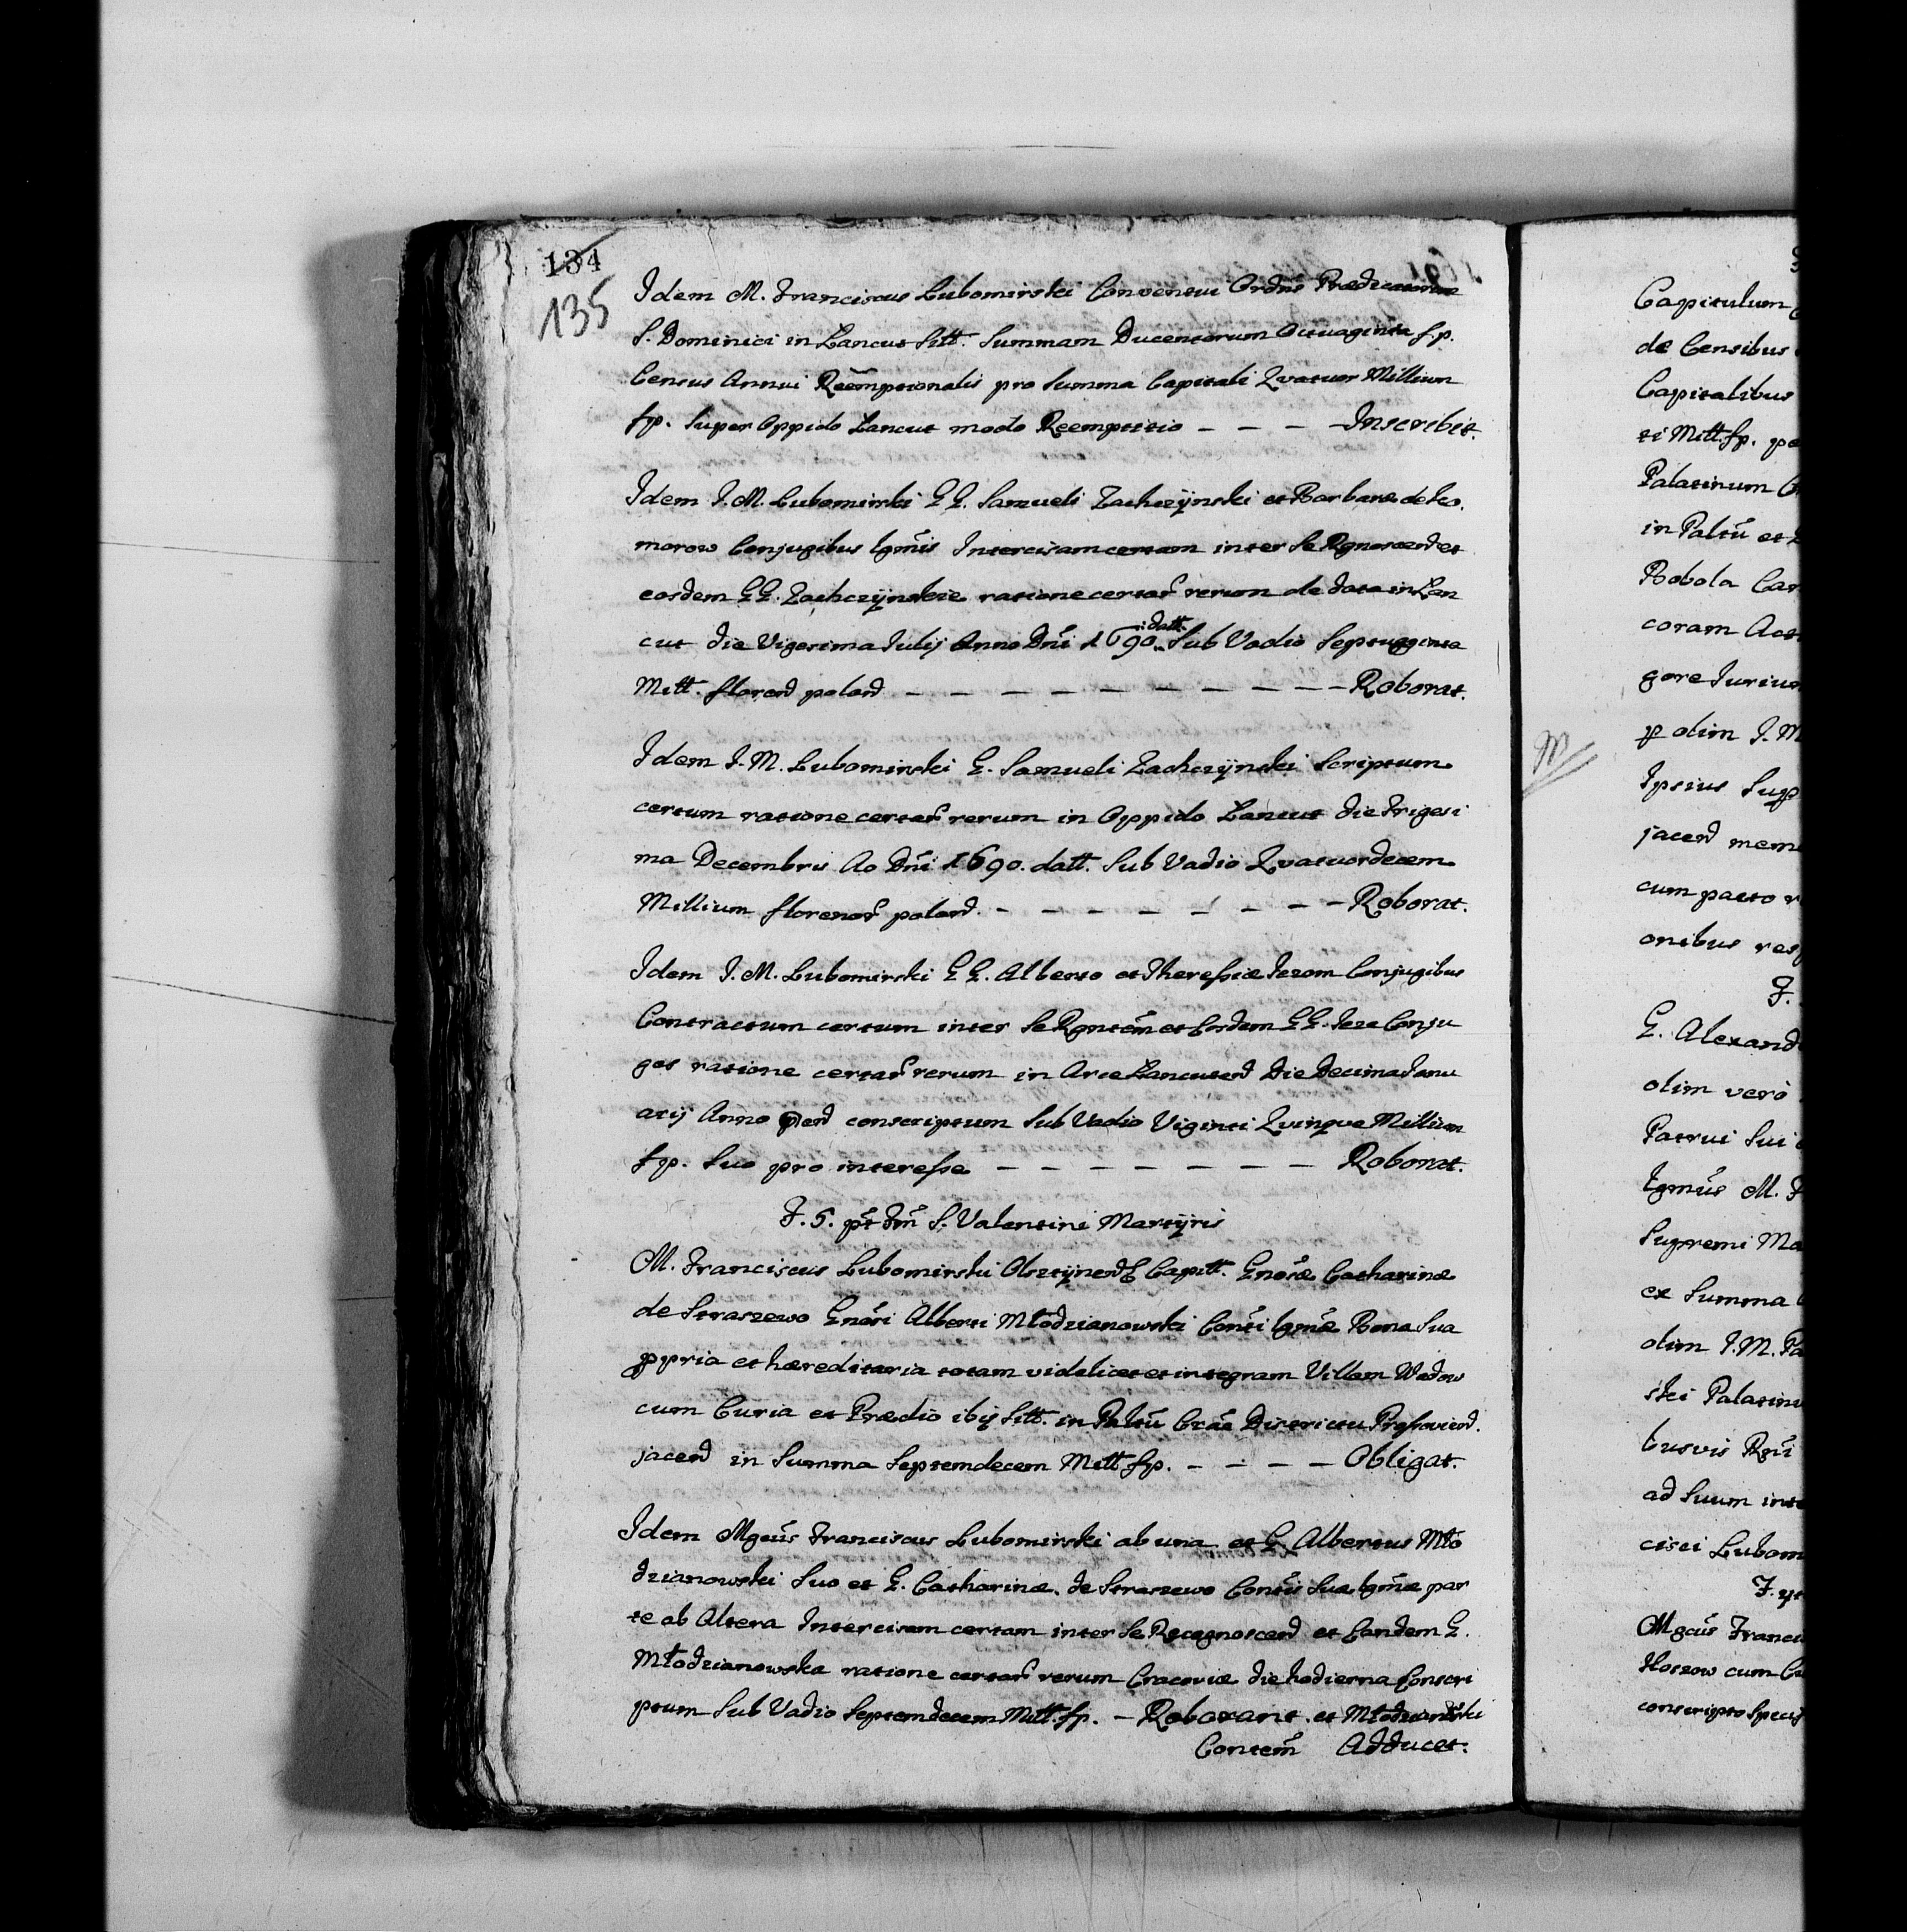 134
135
Idem M. Franciscus Lubomirski Conventui Ordīs Prædicatorum
S. Dominici in Lancut Sitt. Summam Ducentorum Octuaginta fp.
Census Annui Reemptionalis pro Summa Capitali Quatuor Millium
fp. Super Oppido Lancut modo Reemptitio – – – – Inscribit.
Idem I. M. Lubomirski GG. Samueli Zachczÿnski et Barbaræ de Ko
morow Conjugibus Lgmīs Intercisam certam inter Se Rgnoscend et
eosdem GG. Zachczÿnskie ratione certar rerum de data in Lan
cut die Vigesima Iulij Anno Dni 1690. datt. Sub Vadio Septuaginta
Mitt. florend polond – – – – – – – – – – Roborat.
Idem I. M. Lubomirski G. Samueli Zachczÿnski Scriptum
certum ratione certar rerum in Oppido Lancut die trigesi
ma Decembris Ao Dni 1690. datt. Sub Vadio Quatuordecem
Millium florenor polond. – – – – – – – – Roborat.
Idem I. M. Lubomirski GG. Alberto et Theressiæ Jezom Conjugibus
Contractum certum inter Se Rgntem et Eosdem GG. Jeze Conju
ges ratione certar rerum in Arce Lancutend Die Decima Janu
arij Anno pnd conscriptum Sub Vadio Viginti Quinque Millium
fp. Suo pro interesse – – – – – – – Roborat.
F. 5. pt fm S. Valentini Martÿris
M. Franciscus Lubomirski Olsztÿnend Capitt. Gnosæ Catharinæ
de Straszewo Gnosi Alberti Młodzianowski Conti Lgmæ Bona Sua
ppria et hæreditaria totam videlicet et integram Villam Wadow
cum Curia et Prædio ibij Sitt. in Paltu Crac Districtu Prossoviend.
jacend in Summa Septemdecem Mitt fp. – – – – Obligat.
Idem Mgcus Franciscus Lubomirski ab una et G. Albertus Mło
dzianowski Suo et G. Catharinæ de Straszewo Contis Suæ Lgmæ par
te ab Altera Intercisam certam inter Se Recognoscend et Eandem G.
Młodzianowska ratione certar rerum Cracoviæ die hodierna Conscri
ptum Sub Vadio Septemdecem Mitt. fp. – Roborant. et Młodzianowski
Contem Adducet.
Capitulum
de Censibus
Capitalibus
ti Mitt. fp.
Palatinum
in Paltu et
Bobola
coram
gore Iurium
p olim I. M
Ipsius Sup
jacend mem
cum pacto
onibus res
F.
G. Alexand
olim verò
Patrui Sui
Lgmus M. F
Supremi Ma
ex Summa
olim I. M. Pa
ski Palatin
busvis Rni
ad Suum inte
cisci Lubom
F.
Mgcus Franci
cum
conscripto Speci